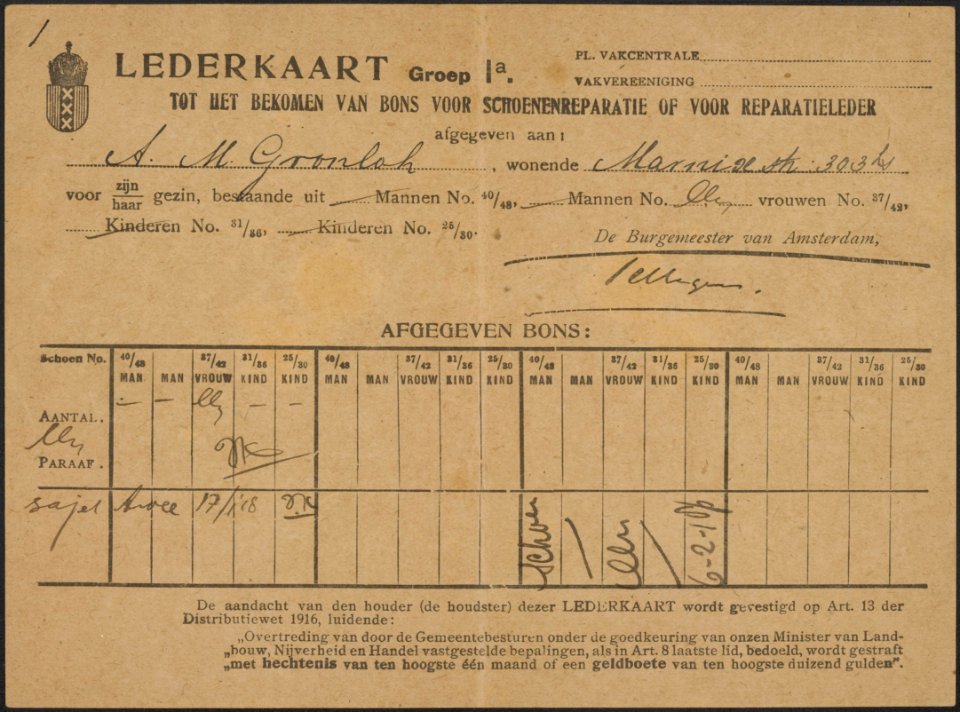 1
LEDERKAART Groep Ia.
PL. VAKCENTRALE
VAKVEREENIGING
TOT HET BEKOMEN VAN BONS VOOR SCHOENENREPARATIE OF VOOR REPARATIELEDER
afgegeven aan:
A. M. Gronloh, wonende Marnixstr. 303 hs
voor zijn/haar gezin, bestaande uit — Mannen No. 40/48, — Mannen No. één vrouwen No. 37/42,
Kinderen No. 31/36, — Kinderen No. 25/30.
De Burgemeester van Amsterdam,
Tellegen.
AFGEGEVEN BONS:
Schoen No. 40/48 37/42 31/36 25/30 40/48 37/42 31/36 25/30 40/48 37/42 31/36 25/30 40/48 37/42 31/36 25/30
MAN MAN VROUW KIND KIND MAN MAN VROUW KIND KIND MAN MAN VROUW KIND KIND MAN MAN VROUW KIND KIND
— — één — —
AANTAL.
één
PARAAF.
sajet twee 17/1 '18
Schoen / één / 6-2-18
De aandacht van den houder (de houdster) dezer LEDERKAART wordt gevestigd op Art. 13 der
Distributiewet 1916, luidende:
„Overtreding van door de Gemeentebesturen onder de goedkeuring van onzen Minister van Land-
„bouw, Nijverheid en Handel vastgestelde bepalingen, als in Art. 8 laatste lid, bedoeld, wordt gestraft
„met hechtenis van ten hoogste één maand of een geldboete van ten hoogste duizend gulden".